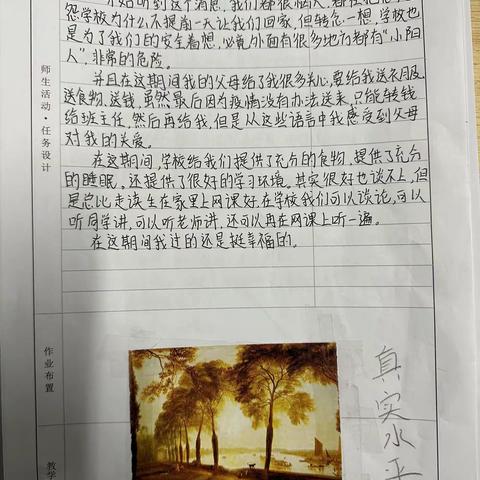 开始听到这个消息,我们都很恼火,都在抱怨
怨学校为什么不提前一天让我们回家,但转念一想,学校也
是为了我们的安全着想,必竟外面有很多地方都有“小阳
人”,非常的危险。
并且在这期间我的父母给了我很多关心,要给我送衣服,
送食物,送钱,虽然最后因为疫情没有办法送来,只能转钱
给班主任,然后再给我,但是从这些语言中我感受到父母
对我的关爱。
在这期间,学校给我们提供了充分的食物,提供了充分
的睡眠,还提供了很好的学习环境。其实很好也谈不上,但
是总比走读生在家里上网课好在学校我们可以谈论,可以
听同学讲,可以听老师讲,还可以再在网课上听一遍。
在这期间我过的还是挺幸福的。
师生活动·任务设计
作业布置
真实水平
教学